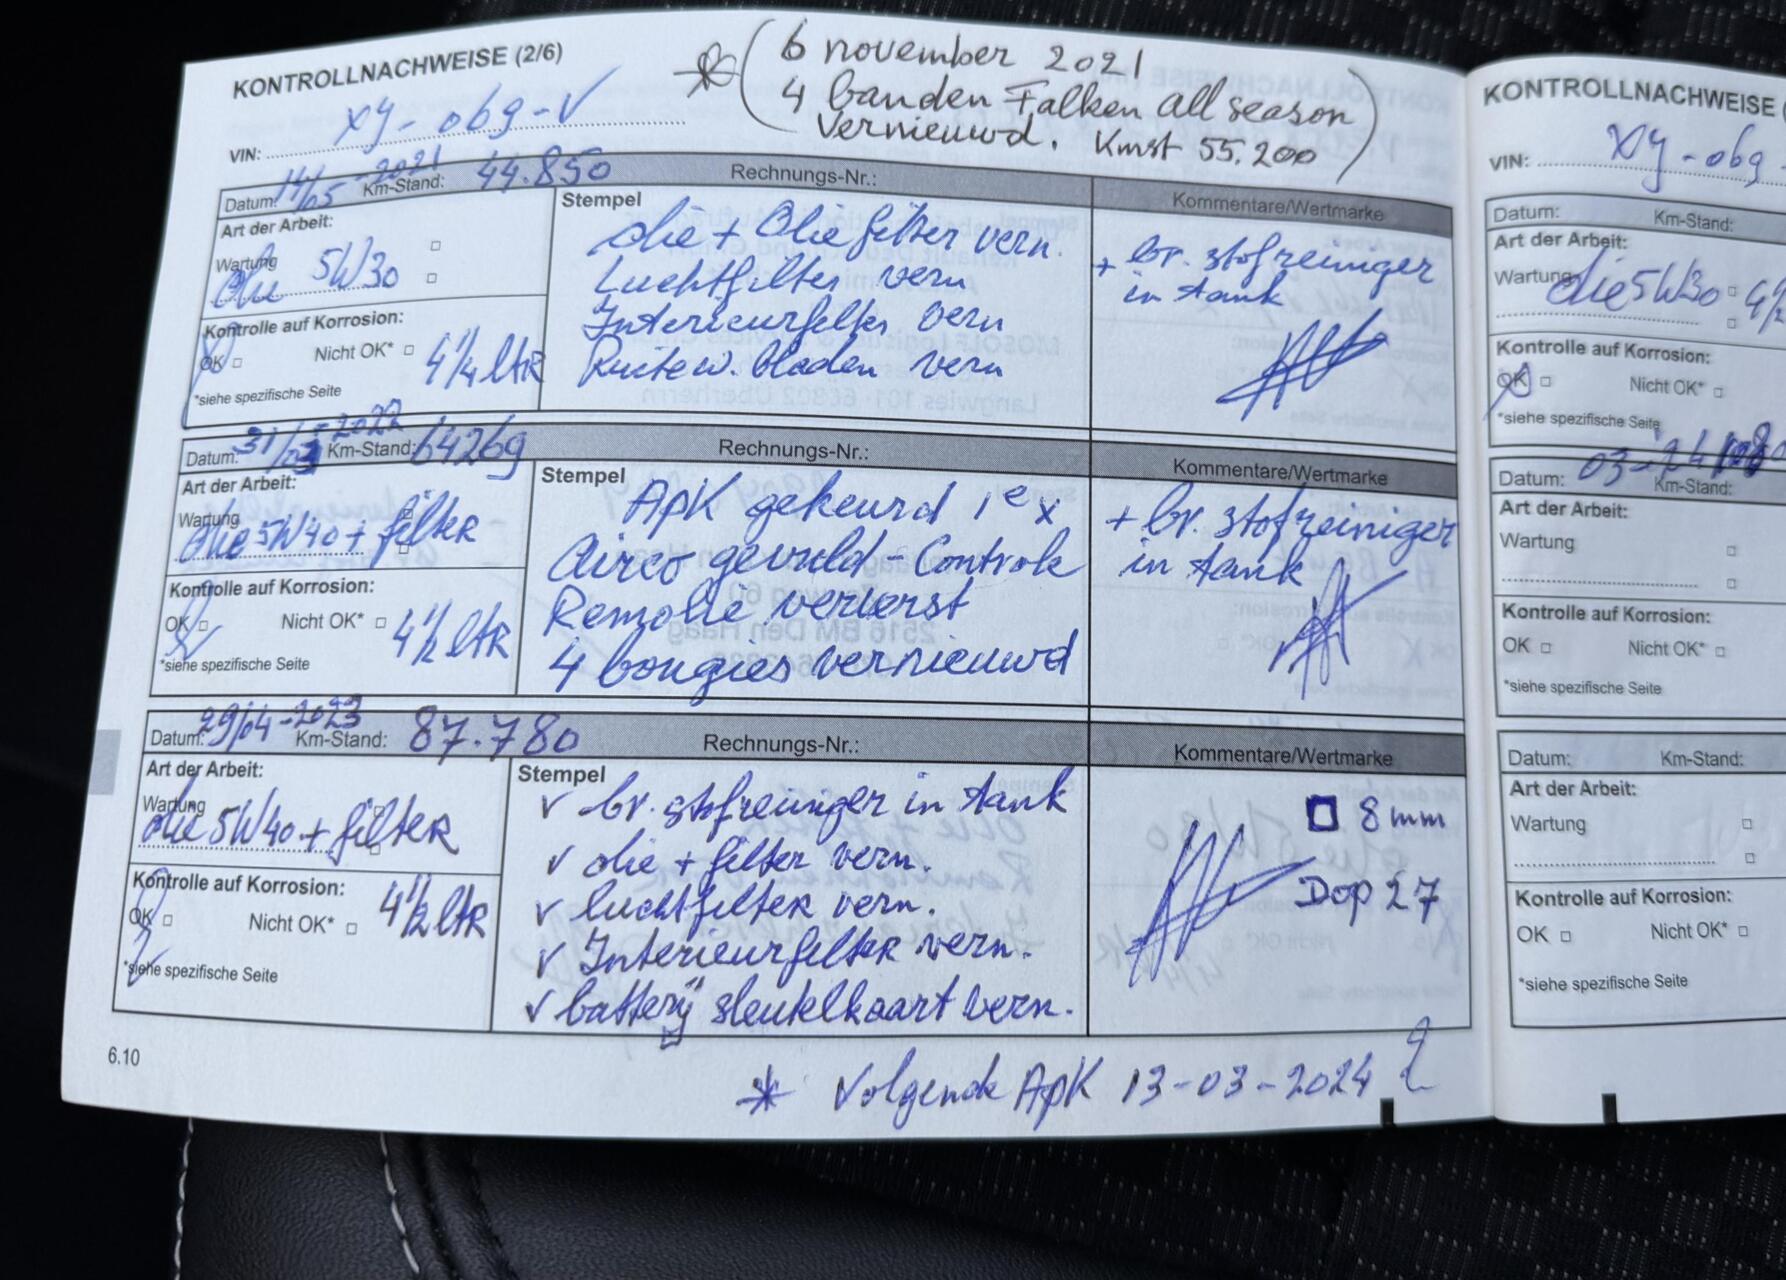 KONTROLLNACHWEISE (2/6)
(6 november 2021
4 banden Falken all season
vernieuwd. Kmst 55.200)
VIN: XJ-069-V
Datum: 14/05-2021 Km-Stand: 44.850 Rechnungs-Nr.:
Art der Arbeit:
Wartung
Olie 5W30
Kontrolle auf Korrosion:
OK Nicht OK*
4 1/4 ltR
*siehe spezifische Seite
Stempel
Olie + Oliefilter vern.
Luchtfilter vern
Interieurfilter vern
Ruitew. bladen vern
Kommentare/Wertmarke
+ br. stofreiniger
in tank
Datum: 31/03 2022 Km-Stand: 64269 Rechnungs-Nr.:
Art der Arbeit:
Wartung
Olie 5W40 + filter
Kontrolle auf Korrosion:
OK Nicht OK*
4 1/2 ltR
*siehe spezifische Seite
Stempel
ApK gekeurd 1e x
Airco gevuld - Controle
Remolie ververst
4 bougies vernieuwd
Kommentare/Wertmarke
+ br. stofreiniger
in tank
Datum: 29/04-2023 Km-Stand: 87.780 Rechnungs-Nr.:
Art der Arbeit:
Wartung
olie 5W40 + filter
Kontrolle auf Korrosion:
OK Nicht OK*
4 1/2 ltR
*siehe spezifische Seite
Stempel
v br. stofreiniger in tank
v olie + filter vern.
v luchtfilter vern.
v Interieurfilter vern.
v battery sleutelkaart vern.
Kommentare/Wertmarke
8 mm
Dop 27
6.10
* Volgende ApK 13-03-2024
KONTROLLNACHWEISE (
VIN: XJ-069
Datum: Km-Stand:
Art der Arbeit:
Wartung
olie 5W30
Kontrolle auf Korrosion:
OK Nicht OK*
*siehe spezifische Seite
Datum: 03-24 Km-Stand:
Art der Arbeit:
Wartung
Kontrolle auf Korrosion:
OK Nicht OK*
*siehe spezifische Seite
Datum: Km-Stand:
Art der Arbeit:
Wartung
Kontrolle auf Korrosion:
OK Nicht OK*
*siehe spezifische Seite